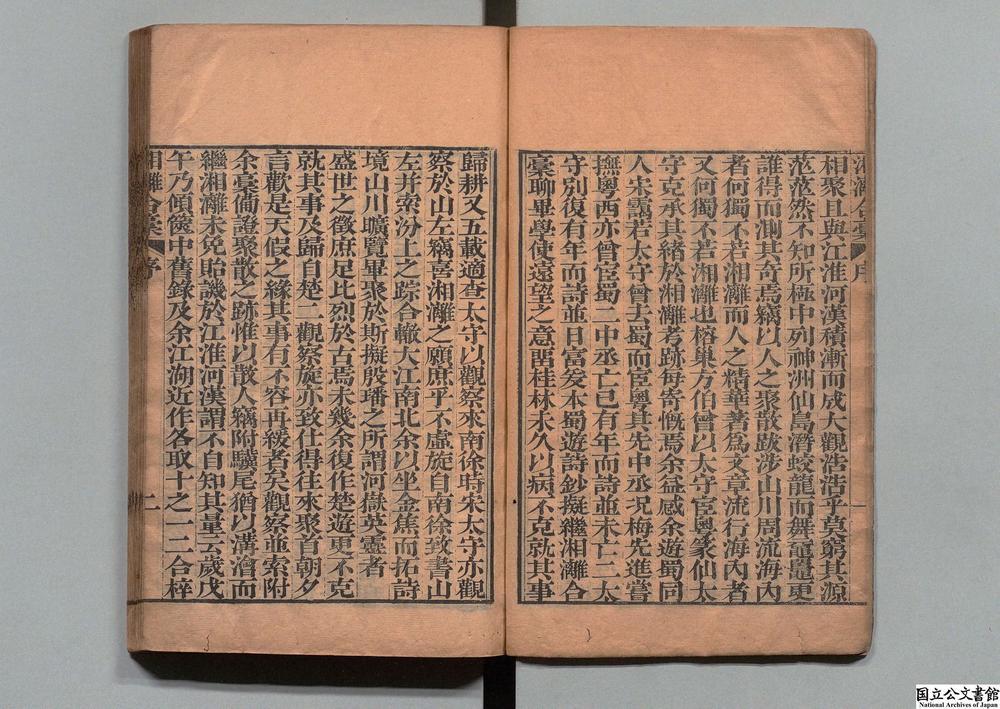 湘灕合稾 序 一
相聚且與江淮河漢積漸而成大觀浩浩乎莫窮其源
茫茫然不知所極中列神洲仙島潛蛟龍而舞黿鼉更
誰得而測其奇焉竊以人之聚散跋涉山川周流海內
者何獨不若湘灕而人之精華著爲文章流行海內者
又何獨不若湘灕也榕巢方伯曾以太守宦粵篆仙太
守克承其緒於湘灕考跡每寄慨焉余益感余遊蜀同
人宋靄若太守曾去蜀而宦粵其先中丞況梅先進嘗
撫粵西亦曾宦蜀二中丞亡已有年而詩並未亡二太
守別復有年而詩並日富爰本蜀遊詩鈔擬繼湘灕合
稾聊畢學使遠望之意畱桂林未久以病不克就其事
歸耕又五載適查太守以觀察來南徐時宋太守亦觀
察於山左竊喜湘灕之願庶乎不虛旋自南徐致書山
左并索汾上之踪合轍大江南北余以坐金焦而拓詩
境山川曠覽畢聚於斯擬殷璠之所謂河嶽英靈者
盛世之徵庶足比烈於古焉未幾余復作楚遊更不克
就其事及歸自楚二觀察旋亦致仕得往來聚首朝夕
言歡是天假之緣其事有不容再緩者矣觀察並索附
余稾僃證聚散之跡惟以散人竊附驥尾猶以溝澮而
繼湘灕未免貽譏於江淮河漢謂不自知其量云歲戊
午乃傾篋中舊錄及余江湖近作各取十之一二合梓
湘灕合稾 序 二
国立公文書館
National Archives of Japan